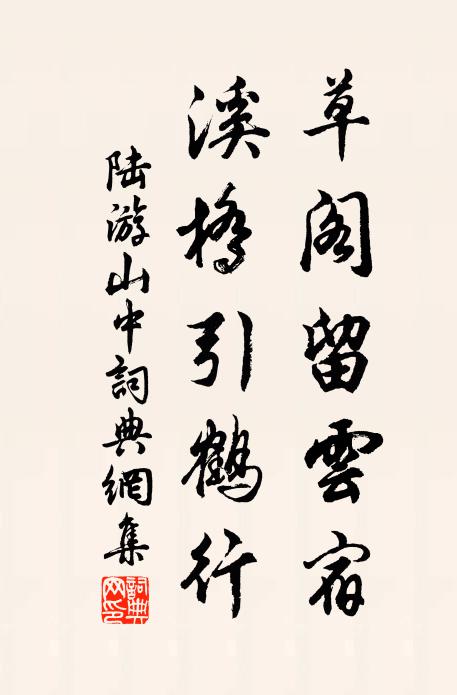 草阁留雲宿
溪橋引鶴行
陆游山中詞典網集
詞典網印